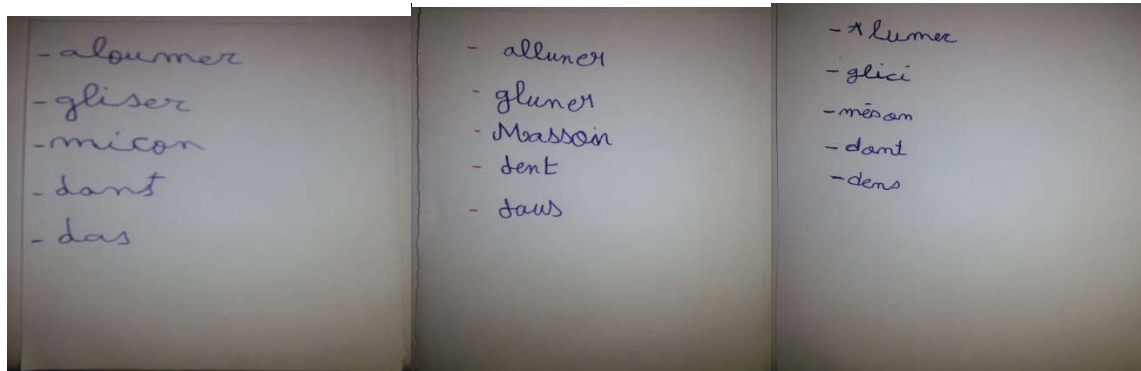 - aloumer
- gliser
- micon
- dant
- das
- alluner
- gluner
- Massoin
- dent
- daus
- Alumer
- glici
- méson
- dant
- dens